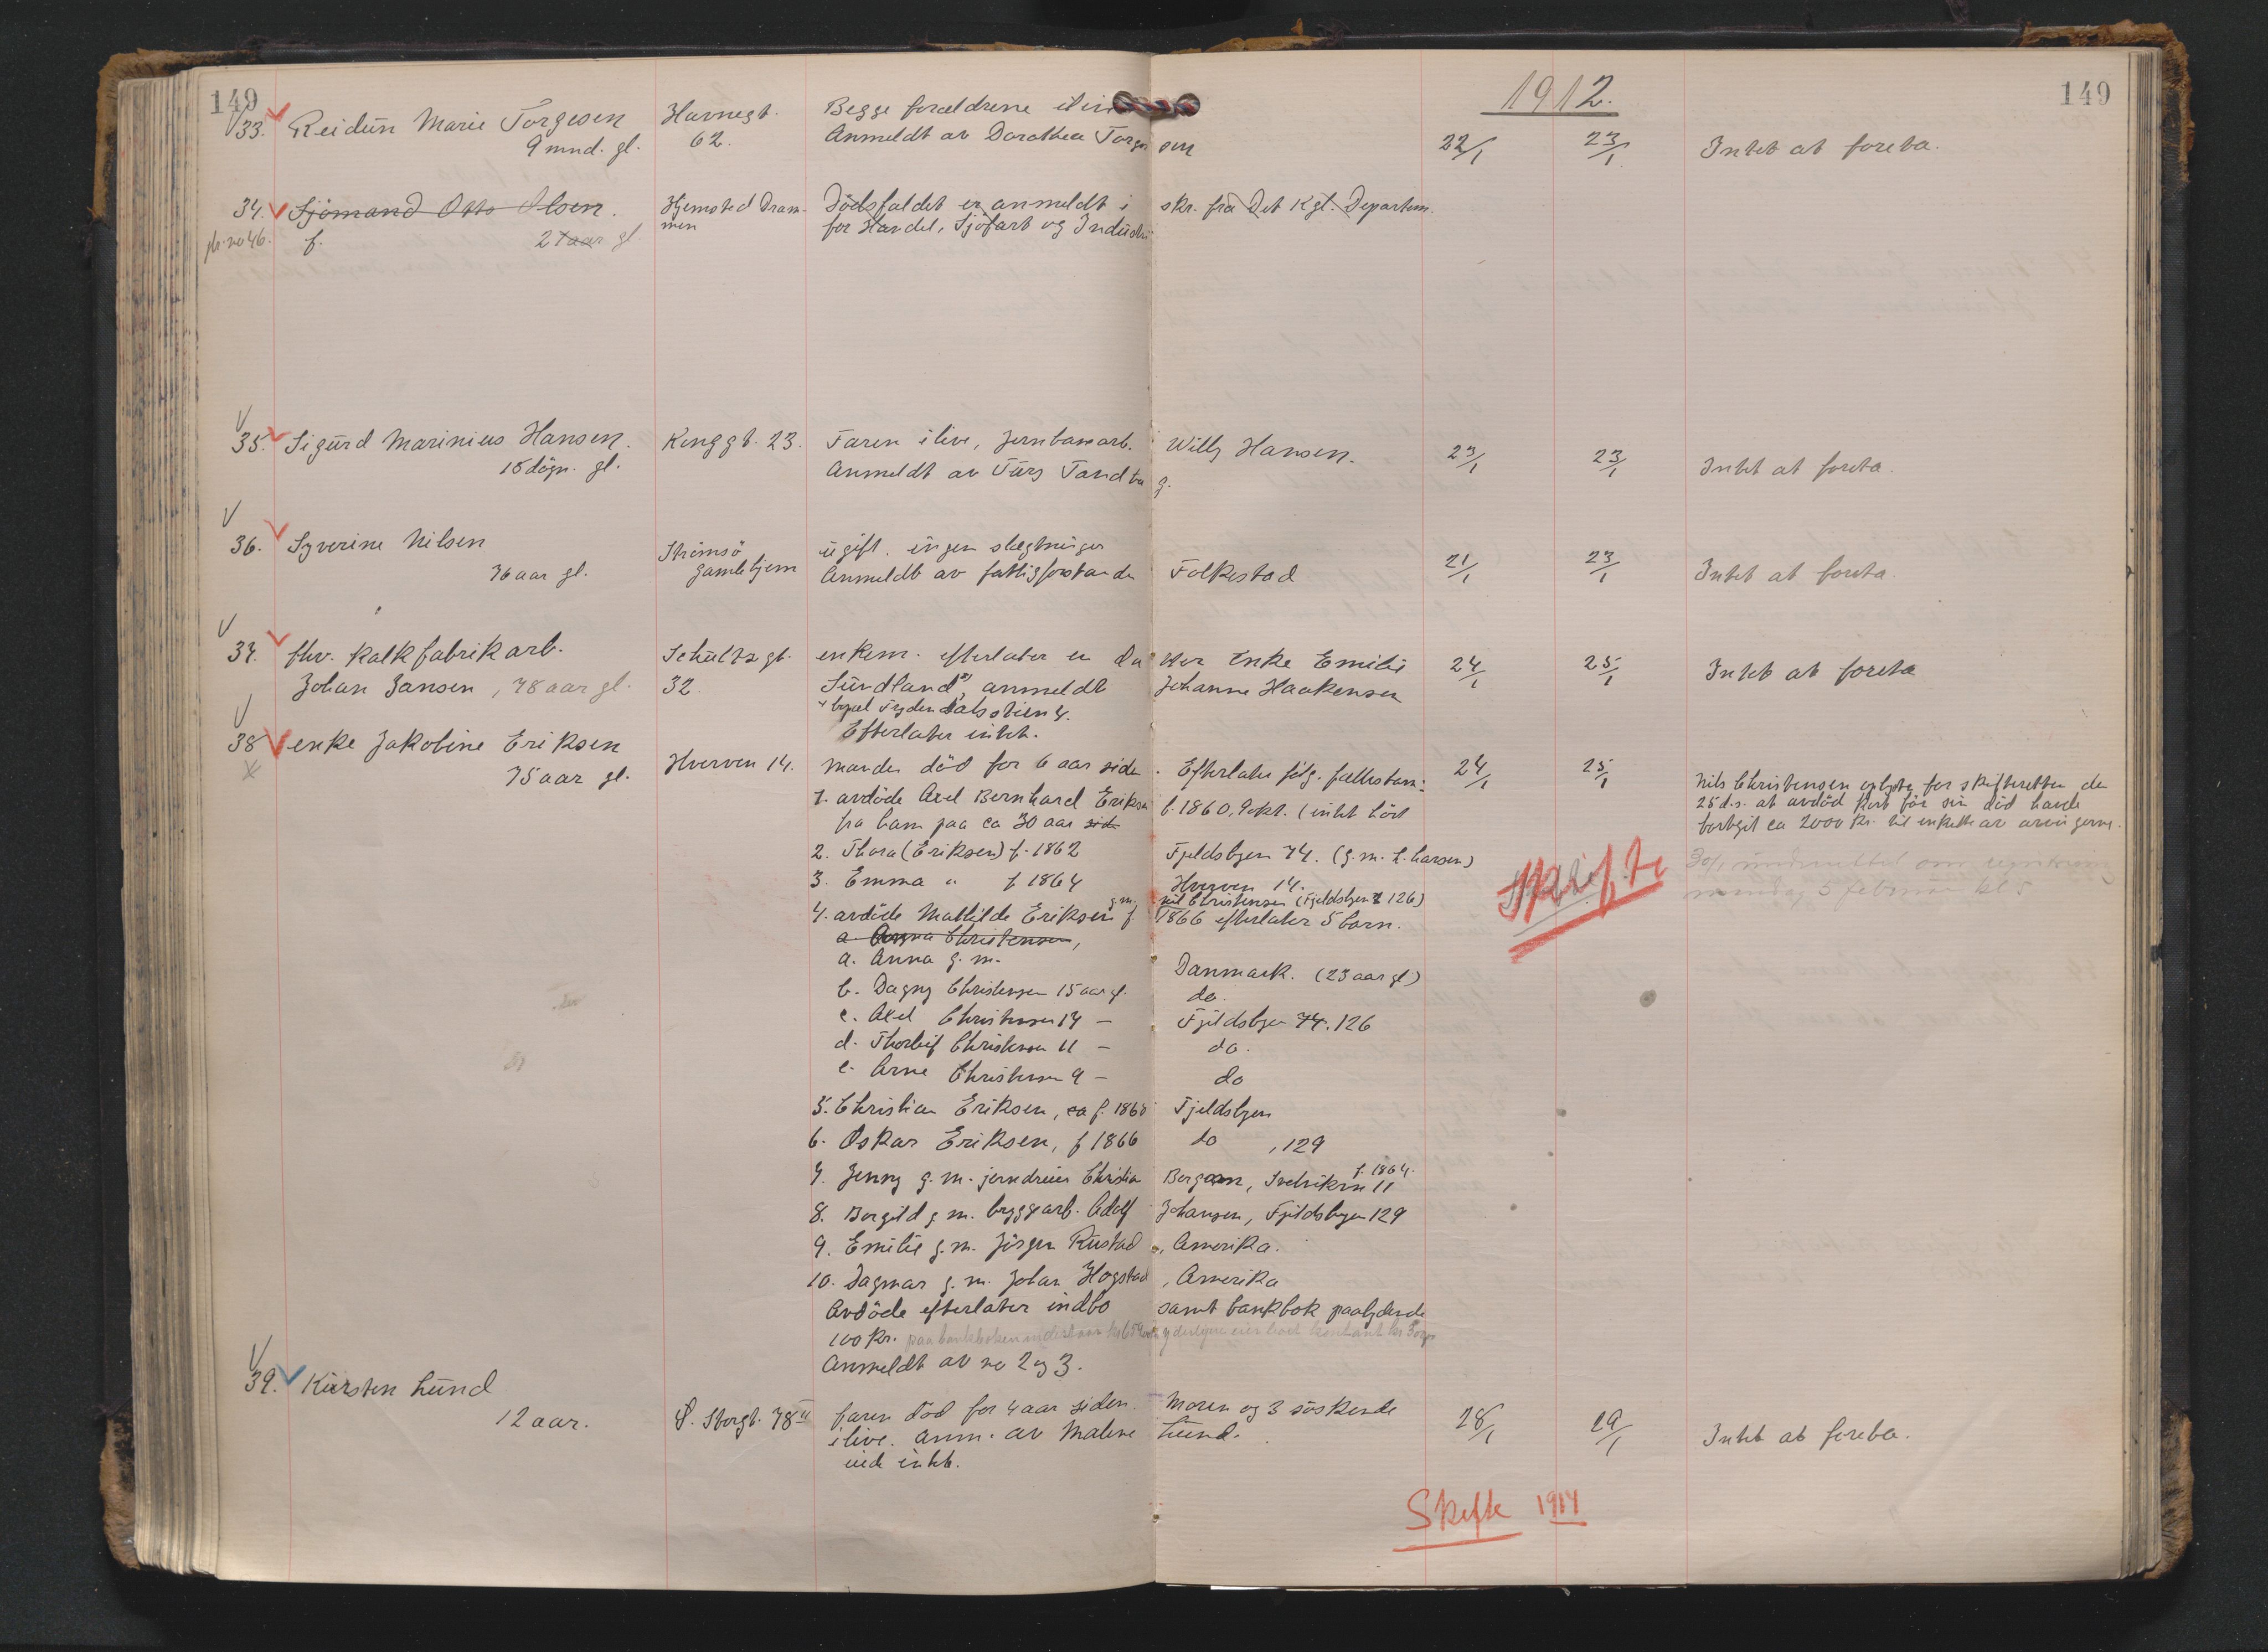 149
1912.
149
33. Reidun Marie Torgesen
9 mnd. gl.
Havnegt.
62.
Begge forældrene
Anmeldt av Dorothea Torgesen
22/1
23/1
Intet at foreta.
34. Sjømand Otto Olsen.
f. 21 aar gl
Hjemsted Drammen
Dødsfaldet er anmeldt i skr. fra Det Kgl. Departem.
for Handel, Sjøfart og Industri
35. Sigurd Marinius Hansen.
18 døgn. gl.
Konggt. 23.
Faren ilive, Jernbanearb. Willy Hansen.
Anmeldt av Tandberg.
23/1
23/1
Intet at foreta.
36. Syverine Nilsen
76 aar gl.
Strømsø
gamlehjem
ugift. ingen slegtninger
Anmeldt av fattigforstander Folkestad
21/1
23/1
Intet at foreta.
37. fhv. Kalkfabrikarb.
Johan Jansen, 78 aar gl.
Schultz gt.
32.
enkem. efterlater en datter Enke Emilie
Sundland x) anmeldt Johanne Haakensen
Efterlater intet.
24/1
25/1
Intet at foreta
38 enke Jakobine Eriksen
75 aar gl.
Hverven 14.
Manden død for 6 aar siden. Efterlater følg. fællesbarn:
24/1
25/1
1. avdøde Axel Bernhard Eriksen f. 1860, (intet hørt
fra ham paa ca 30 aar
2. Thora (Eriksen) f. 1862 Fjeldsbyen 74. (g.m. L. Larsen)
3. Emma " f 1864 Hverven 14.
4. avdøde Mathilde Eriksen g.m. Nils Christensen (Fjeldsbyen 126)
f 1866 efterlater 5 barn.
a. Anna Christensen,
a. Anna g. m. Danmark. (23 aar gl)
b. Dagny Christensen 15 aar gl. do.
c. Axel Christensen 14 — Fjeldsbyen 74. 126
d. Thorleif Christensen 11 — do.
e. Arne Christensen 9 — do
5. Christian Eriksen, ca f. 1868 Fjeldsbyen
6. Oskar Eriksen, f 1866 do, 129
7. Jenny g. m. jerndreier Christian Bergersen, f. 1864.
8. Borgild g m. byggearb. Adolf Johansen, Fjeldsbyen 129
9. Emilie g. m. Jørgen Rustad, Amerika.
10. Dagmar g. m. Johan Hogstad, Amerika
Avdøde efterlater indbo samt bankbok paalydende
100 kr.
Anmeldt av no 2 og 3.
Nils Christensen oplyste for skifteretten den
25 d.s. at avdød kort før sin død havde
bortgit ca 2000 kr. til enkelte av arvingerne.
mandag 5 februar kl 5
Skifte
39. Kirsten Lund
12 aar.
Storgt. 78 II
faren død for 4 aar siden. Moren og 3 søskende
ilive. anm. av Malene Lund.
28/1
29/1
Intet at foreta.
Skifte 1914